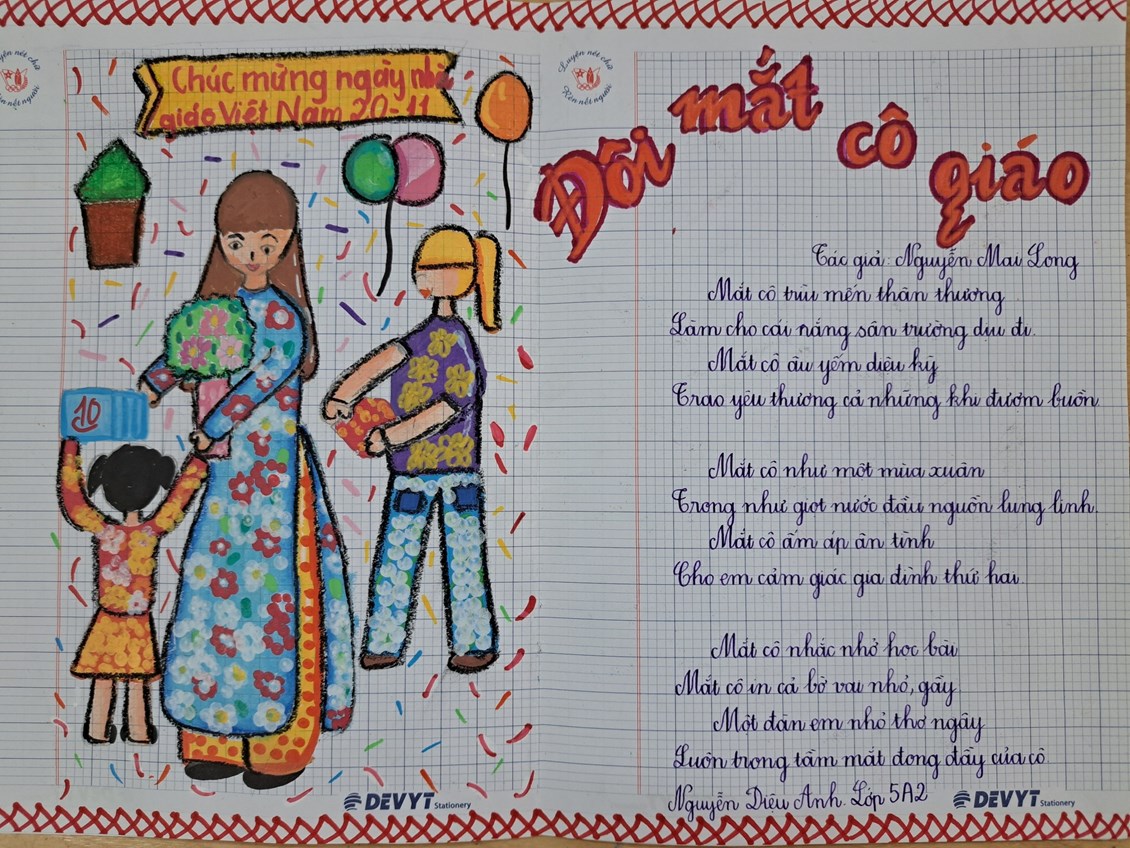 Chúc mừng ngày nhà
giáo Việt Nam 20-11
10
DEVYT Stationery
Luyện nét chữ
Rèn nết người
Đôi mắt cô giáo
Tác giả: Nguyễn Mai Long
Mắt cô trìu mến thân thương
Làm cho cái nắng sân trường dịu đi.
Mắt cô âu yếm diệu kỳ
Trao yêu thương cả những khi đượm buồn.
Mắt cô như một mùa xuân
Trong như giọt nước đầu nguồn lung linh.
Mắt cô ấm áp ân tình
Cho em cảm giác gia đình thứ hai.
Mắt cô nhắc nhở học bài
Mắt cô in cả bờ vai nhỏ, gầy
Một đàn em nhỏ thơ ngây
Luôn trong tầm mắt đong đầy của cô.
Nguyễn Diệu Anh. Lớp 5A2
DEVYT Stationery